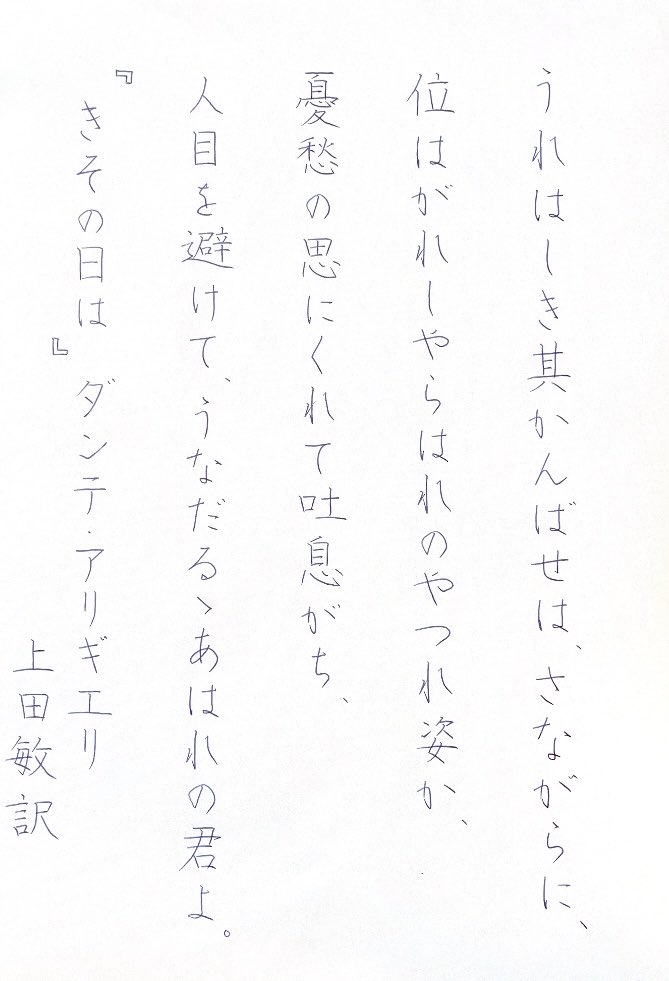 うれはしき其かんばせは、さながらに、
位はがれしやらはれのやつれ姿か、
憂愁の思にくれて吐息がち、
人目を避けて、うなだるゝあはれの君よ。
『きその日は』ダンテ・アリギエリ
上田敏訳